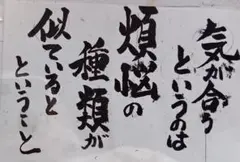 気が合う
というのは
煩悩の
種類が
似ていると
ということ